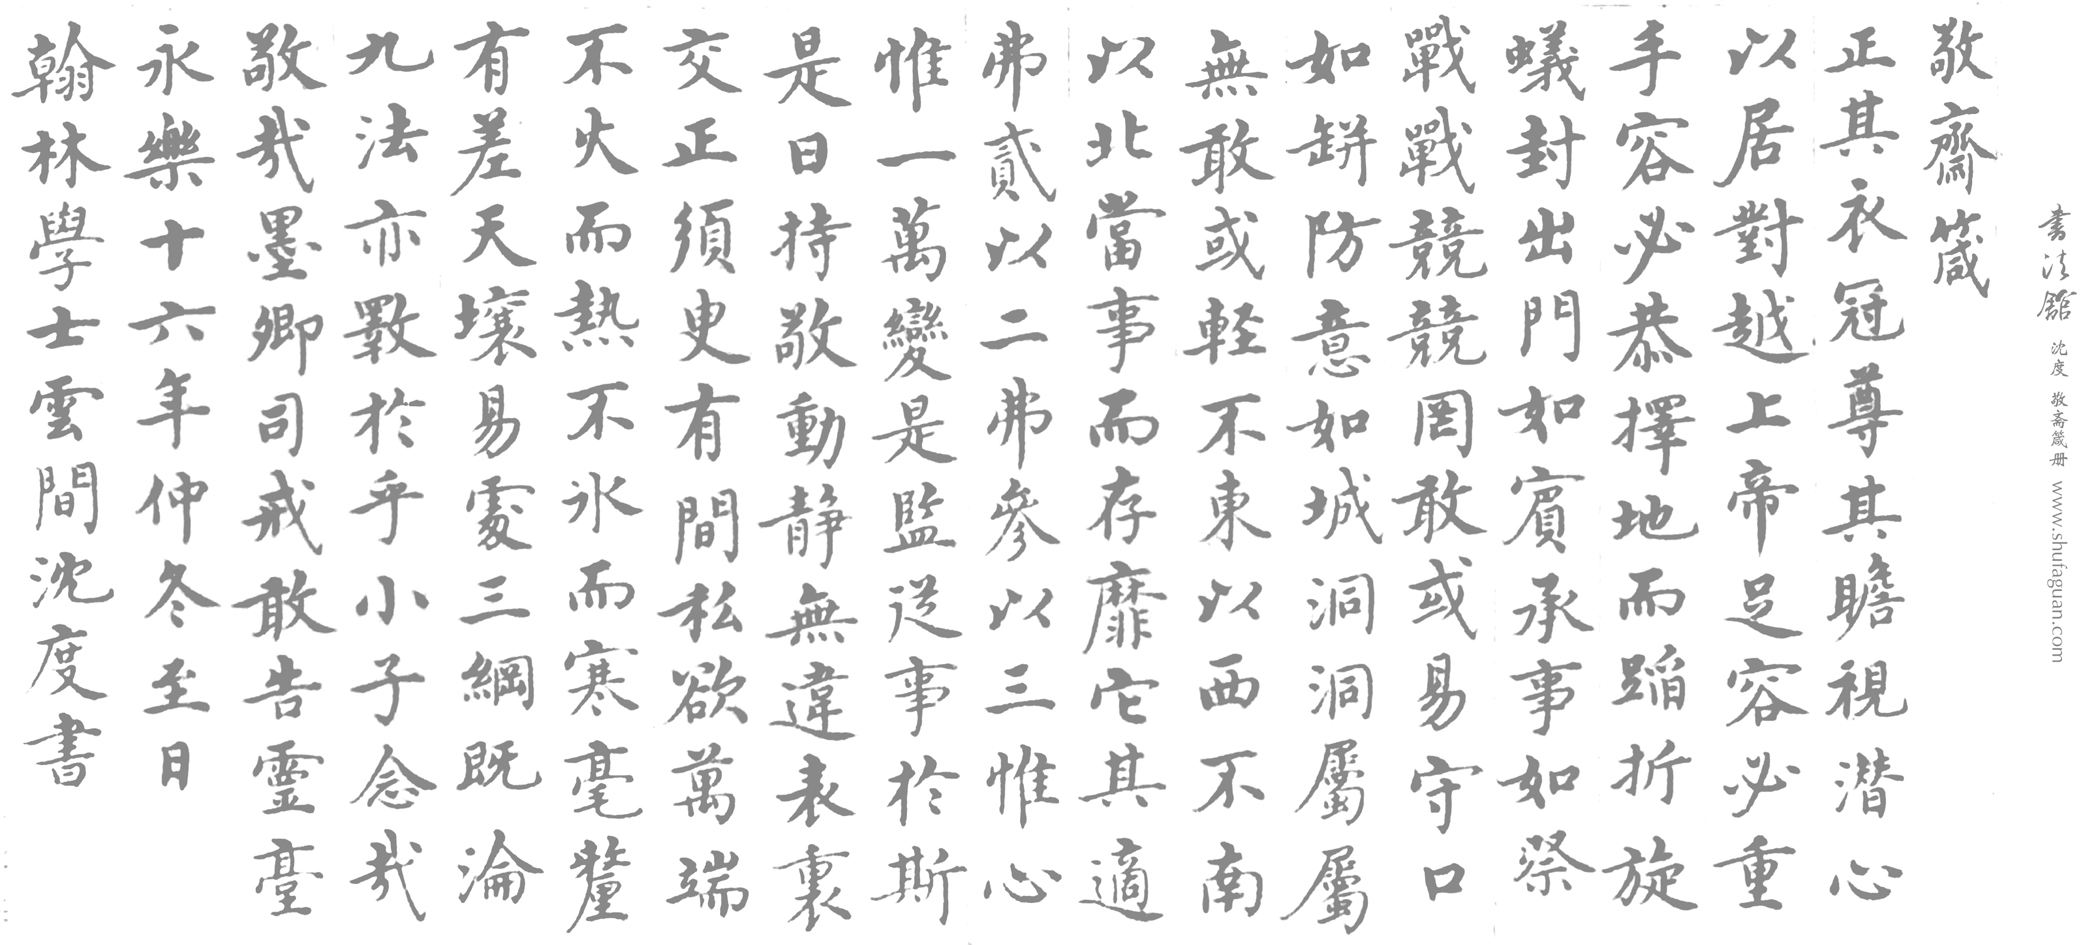 书法馆 沈度 敬斋箴册 www.shufaguan.com
敬齋箴
正其衣冠尊其瞻視潜心
以居對越上帝足容必重
手容必恭擇地而蹈折旋
蟻封出門如賓承事如祭
戰戰競競罔敢或易守口
如缾防意如城洞洞屬屬
無敢或軽不東以西不南
以北當事而存靡它其適
弗貳以二弗參以三惟心
惟一萬變是監従事於斯
是日持敬動静無違表裏
交正須臾有間私欲萬端
不火而熱不氷而寒毫釐
有差天壤易處三綱既淪
九法亦斁於乎小子念哉
敬哉墨卿司戒敢告靈臺
永樂十六年仲冬至日
翰林學士雲間沈度書